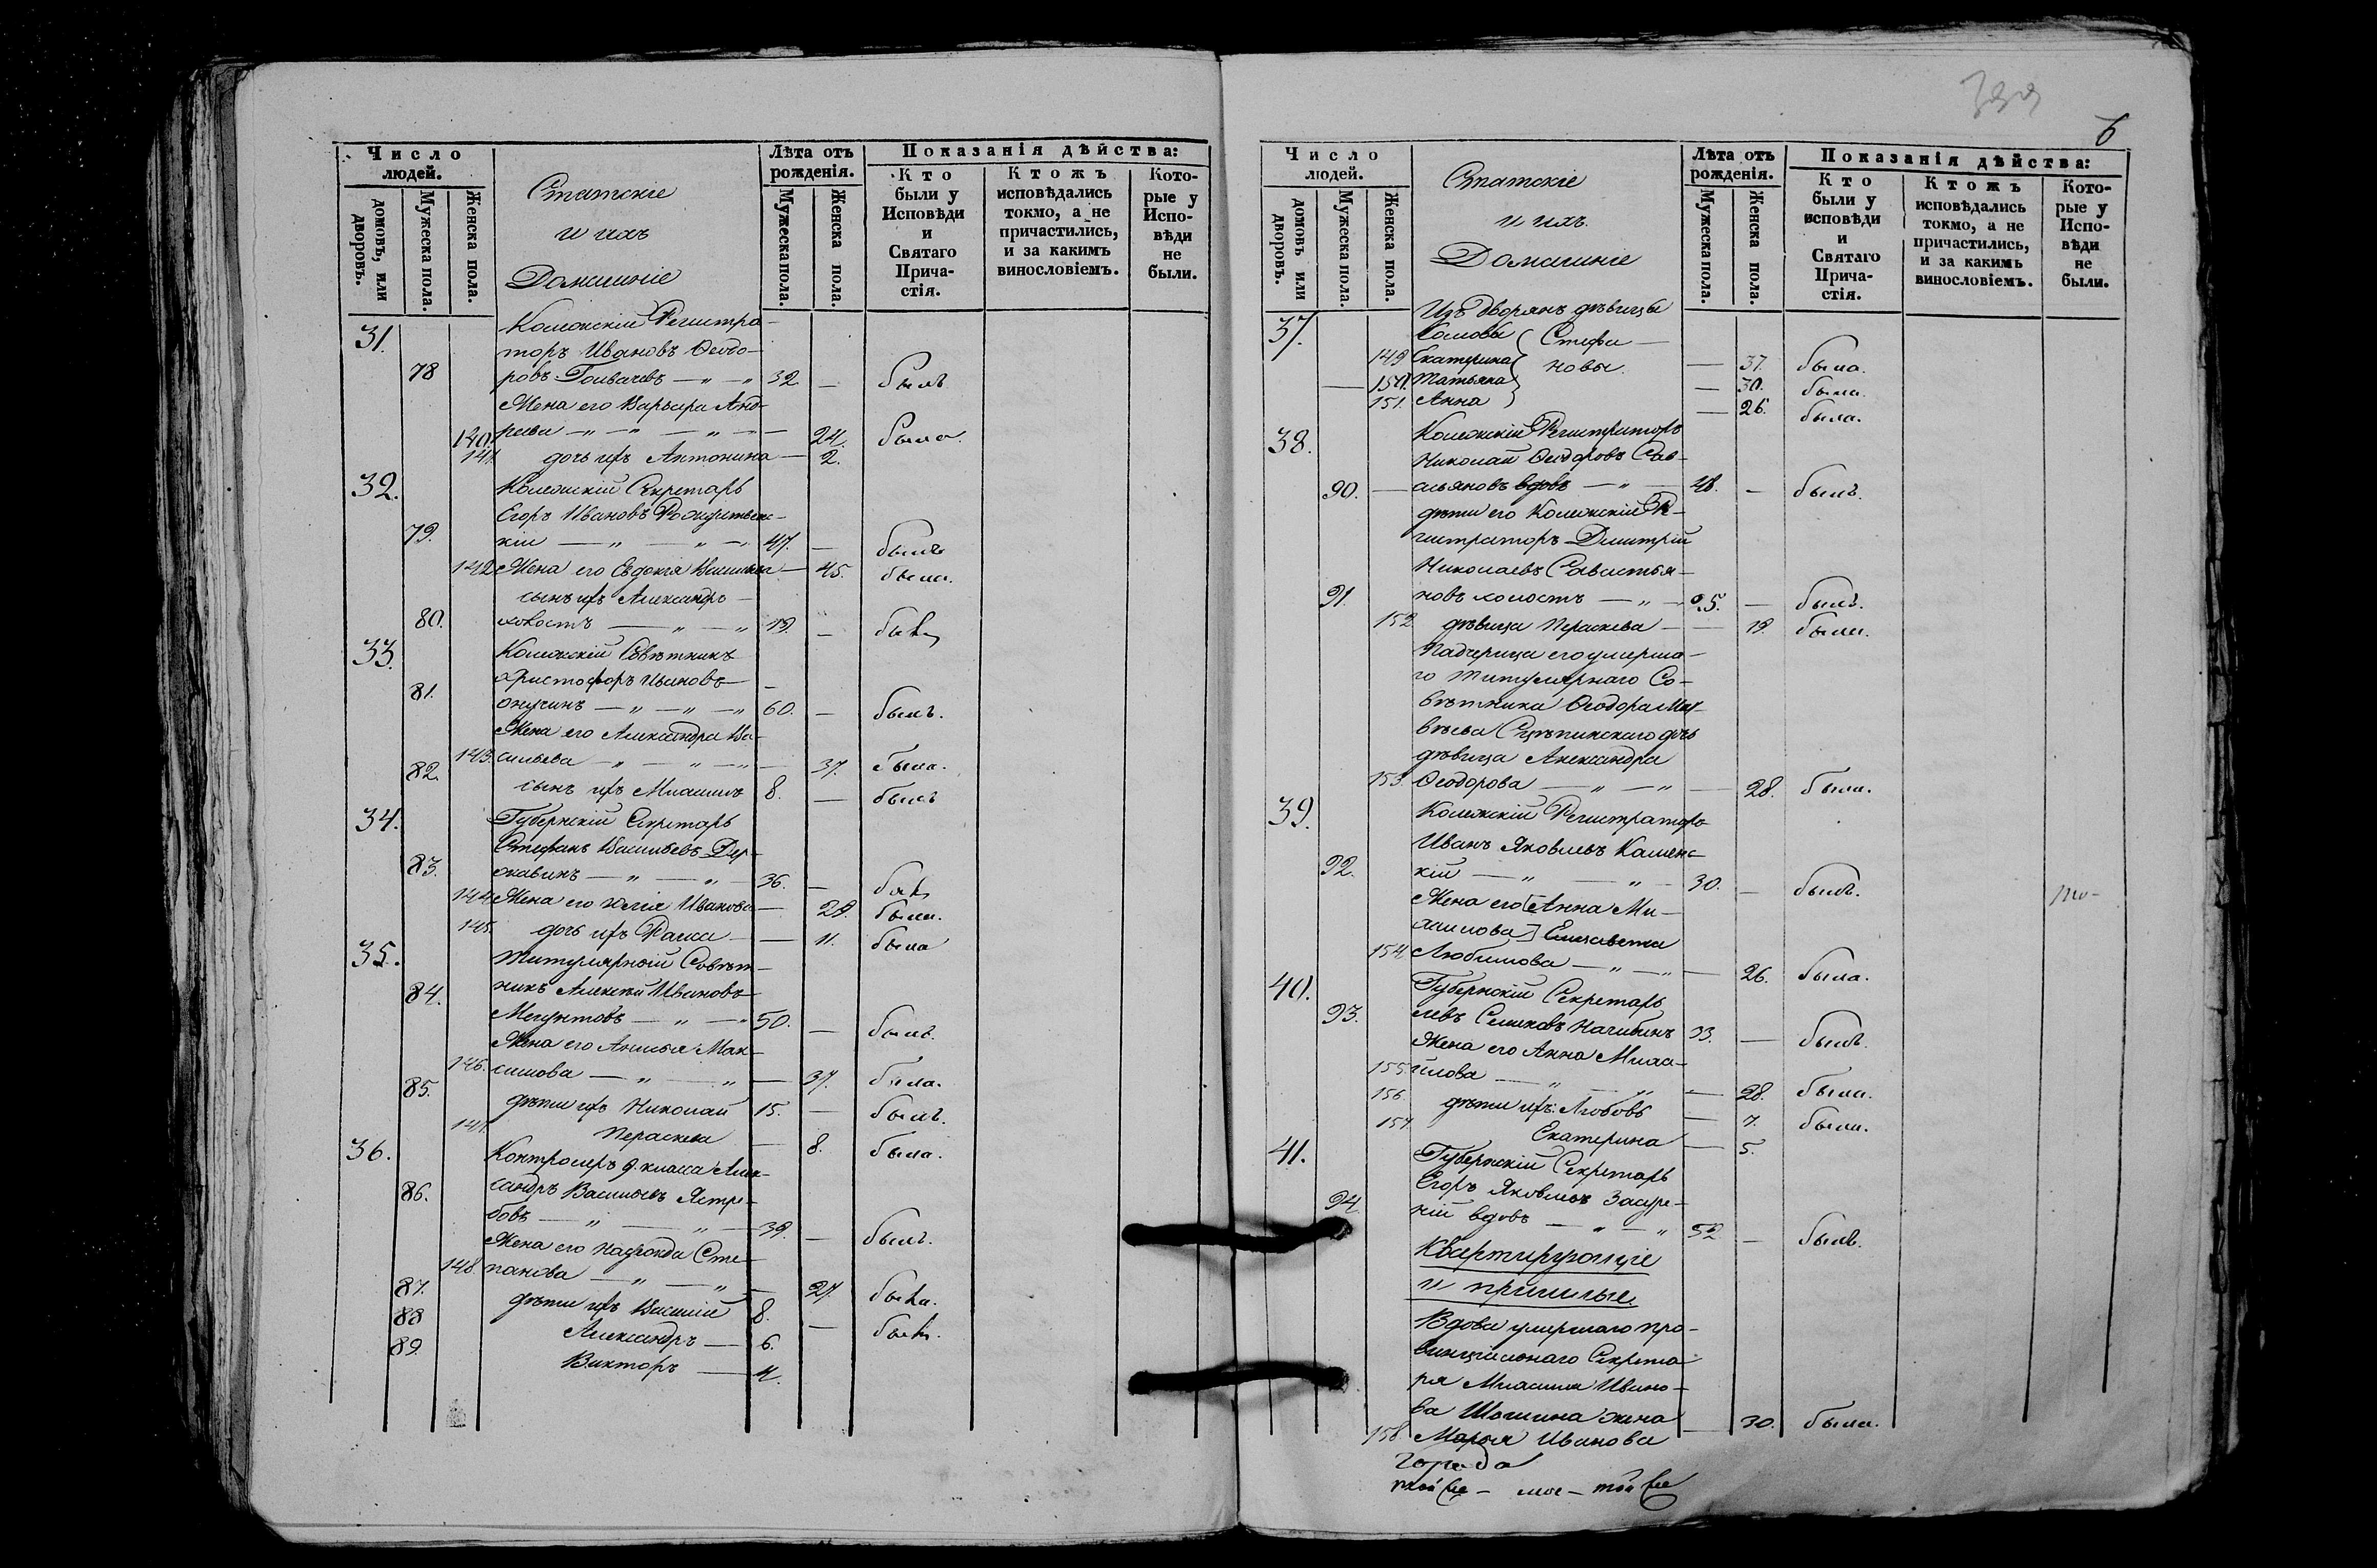 Число людей.
домовъ, или дворовъ.
Мужеска пола.
Женска пола.
Статскіе
и ихъ
Домашніе
Лѣта отъ рожденія.
Мужеска пола.
Женска пола.
Показанія дѣйства:
Кто были у Исповѣди и Святаго Прича-стія.
Ктожъ исповѣдались токмо, а не причастились, и за какимъ винословіемъ.
Кото-рые у Испо-вѣди не были.
31. Колежскій Регистра-
торъ Ивановъ Ѳеодо-
78 ровъ 32 — былъ
Жена его Варвара Анд-
140. реева — 24. была.
141. дочь ихъ Антонина — 2.
32. Колежскій Секретарь
Егоръ Ивановъ Рождественс-
79. кій — 47. — былъ
142. Жена его Евдокія — 45. была.
сынъ ихъ Александръ —
80. холостъ — 19. — былъ
33. Колежскій Совѣтникъ
Христофоръ Ивановъ —
81. Онучинъ — 60. — былъ.
Жена его Александра Ва-
143. сильева — 37. была.
82. сынъ ихъ Михаилъ 8. — былъ
34. Губернскій Секретарь
Стефанъ Васильевъ Дер-
83. жавинъ — 36. — былъ
144. Жена его Юлія Иванова — 29. была.
145. дочь ихъ Раиса — 11. была
35. Титулярный Совѣт-
84. никъ Алексѣй Ивановъ
50. — былъ.
Жена его Анисья Мак-
146. симова — 37. была.
85. дѣти ихъ Николай 15. — былъ.
147. Параскева — 8. была.
36. Контролеръ 9. класса Алек-
86. сандръ Васильевъ Ястре-
бовъ — 39. — былъ.
Жена его Надежда Сте-
148. панова — 27. была.
87. дѣти ихъ Василій 8. — былъ.
88 Александръ — 6.
89. Викторъ — 4.
6
Число людей.
домовъ или дворовъ.
Мужеска пола.
Женска пола.
Статскіе
и ихъ
Домашніе
Лѣта отъ рожденія.
Мужеска пола.
Женска пола.
Показанія дѣйства:
Кто были у исповѣди и Святаго Прича-стія.
Ктожъ исповѣдались токмо, а не причастились, и за какимъ винословіемъ.
Кото-рые у Испо-вѣди не были.
37. Изъ дворянъ дѣвицы
Стефа-
149 Екатерина новы — 37. была.
150. Татьяна — 30. была.
151. Анна — 26. была.
38. Колежскій Регистраторъ
Николай Ѳеодоровъ Сав-
90. — вдовъ — 48. — былъ.
дѣти его Колежскій Ре-
гистраторъ Димитрій
Николаевъ
91. новъ холостъ — 25. — былъ.
152 дѣвица Параскева — 19. была.
Падчерица его умерша-
го Титулярнаго Со-
вѣтника Ѳеодора Мат-
вѣева дочь
дѣвица Александра
153. Ѳеодорова — 28. была.
39. Колежскій Регистраторъ
Иванъ Яковлевъ Каменс-
92. кій — 30. — былъ.
Жена его [Анна Ми-
хаилова] Елисавета
154. Любимова — 26. была.
40. Губернскій Секретарь
93. 33. — былъ.
Жена его Анна Миха-
155. илова — 28. была.
156. дѣти ихъ: Любовь — 7. была.
157. Екатерина — 5.
41. Губернскій Секретарь
Егоръ Яковлевъ
94. вдовъ — 52 — былъ.
Квартирующіе
и пришлые.
Вдова умершаго про-
винціальнаго Секрета-
ря Михаила Ивано-
ва Шошина жена
158. Марья Иванова — 30. была.